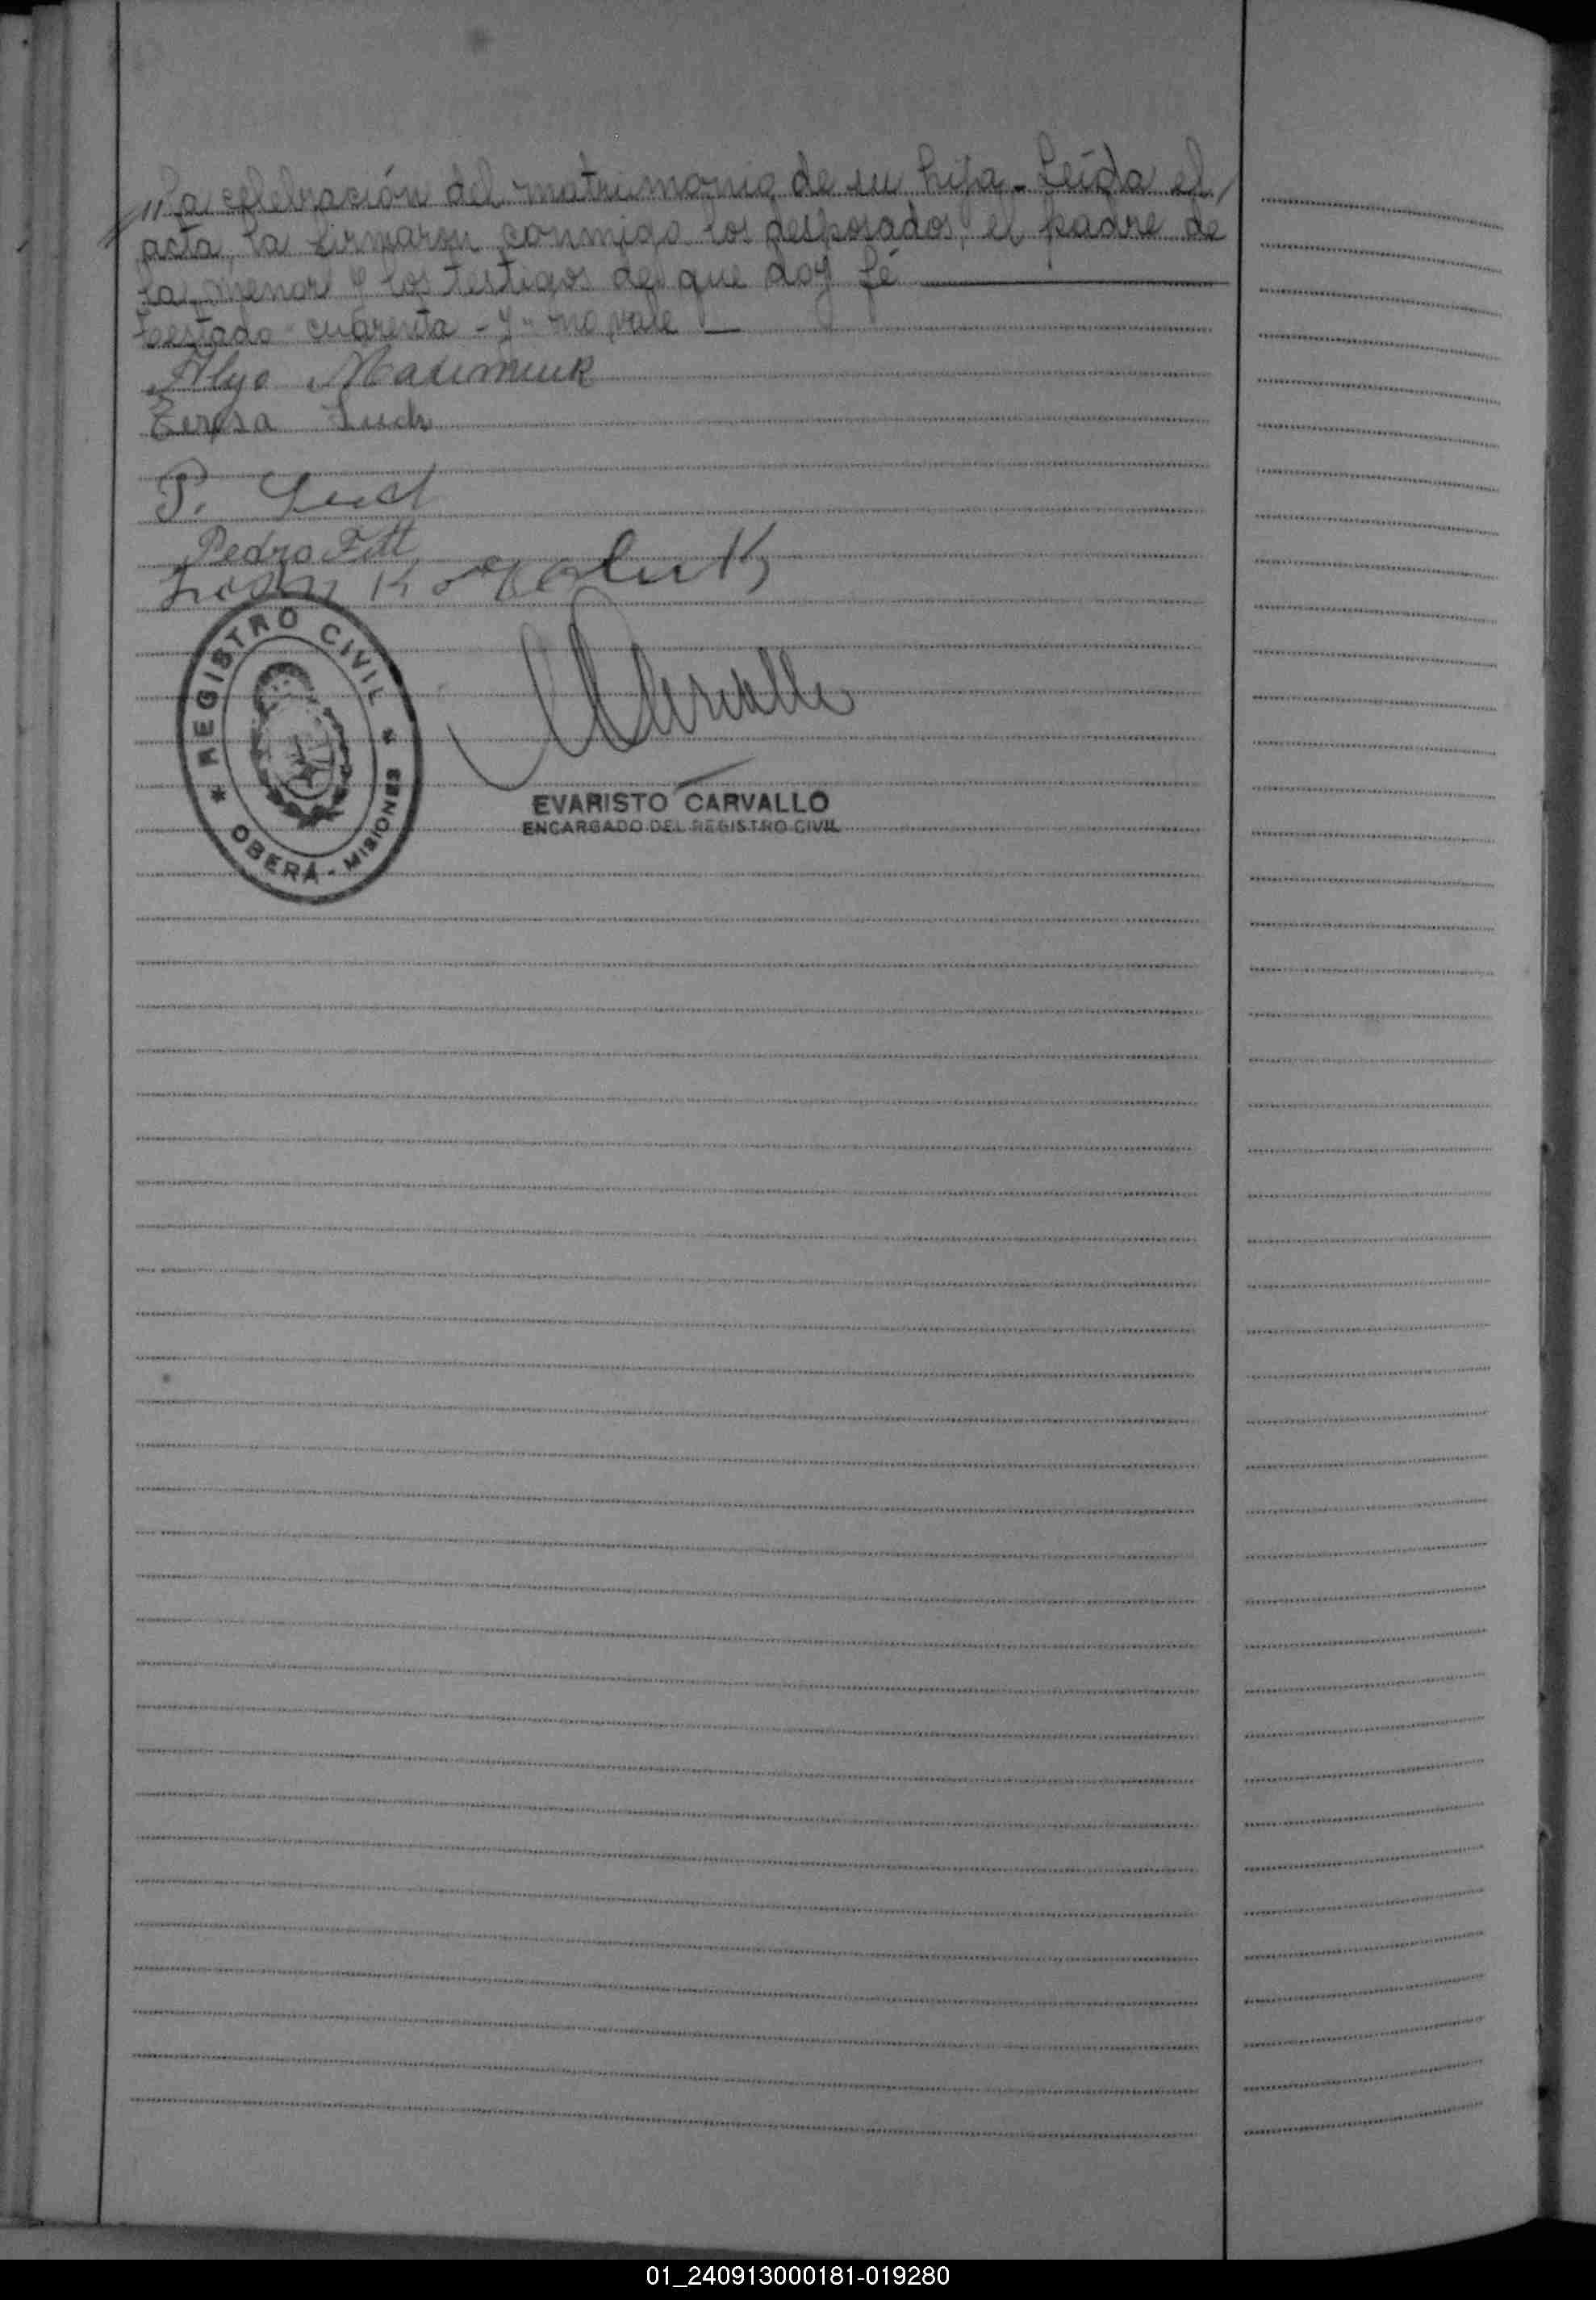 //la celebración del matrimonio de su hija - Leída el
acta, la firmaron conmigo los desposados, el padre de
la menor y los testigos de que doy fé
Testado - cuarenta - y - no vale
Maximiuk
Teresa Luch
P. Luch
Pedro Fitt
REGISTRO CIVIL
OBERÁ - MISIONES
Carvallo
EVARISTO CARVALLO
ENCARGADO DEL REGISTRO CIVIL
01_240913000181-019280